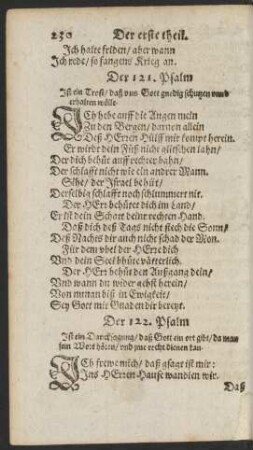 230 Der erste theil.
Ich halte friden/ aber wann
Ich rede/ so fangens Krieg an.
Der 121. Psalm
Ist ein Trost/ daß vns Gott gnedig schutzen vnd
erhalten wölle
ICh hebe auff die Augen mein
Zu den Bergen/ darvon allein
Deß HErren Hülff mir kompt herein.
Er wirdt dein Füß nicht glitschen lahn/
Der dich behüt auff rechter bahn/
Der schlafft nicht wie ein ander Mann.
Sihe/ der Israel behüt/
Derselbig schlafft noch schlummert nit.
Der HErr behütet dich im Land/
Er ist dein Schatt deinr rechten Hand.
Daß dich deß Tags nicht stech die Sonn/
Deß Nachts dir auch nicht schad der Mon.
Für dem vbel der HErr dich
Vnd dein Seel bhüte vätterlich.
Der HErr behüt den Außgang dein/
Vnd wann du wider gehst herein/
Von nunan biß in Ewigkeit/
Sey Gott mit Gnaden dir bereyt.
Der 122. Psalm
Ist ein Dancksagung/ daß Gott ein ort gibt/ da man
sein Wort hören/ vnd jme recht dienen kan.
ICh frewe mich/ daß gsagt ist mir:
Ins HErren Hause wandlen wir.
Daß